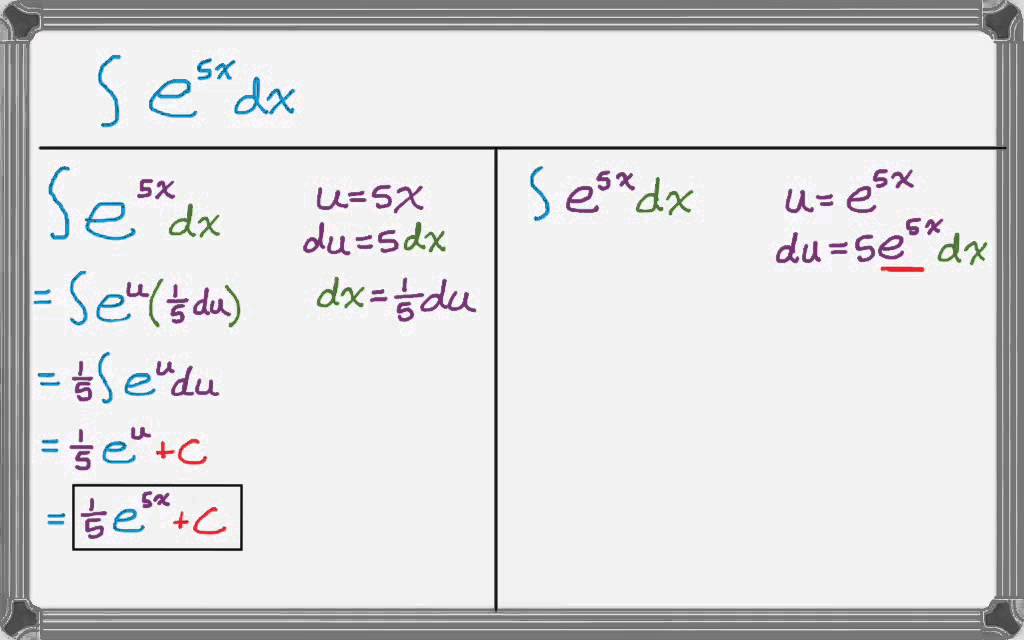 ∫ e^{5x} dx
∫ e^{5x} dx
u = 5x
du = 5 dx
= ∫ e^u (1/5 du)
dx = 1/5 du
= 1/5 ∫ e^u du
= 1/5 e^u + C
= 1/5 e^{5x} + C
∫ e^{5x} dx
u = e^{5x}
du = 5e^{5x} dx